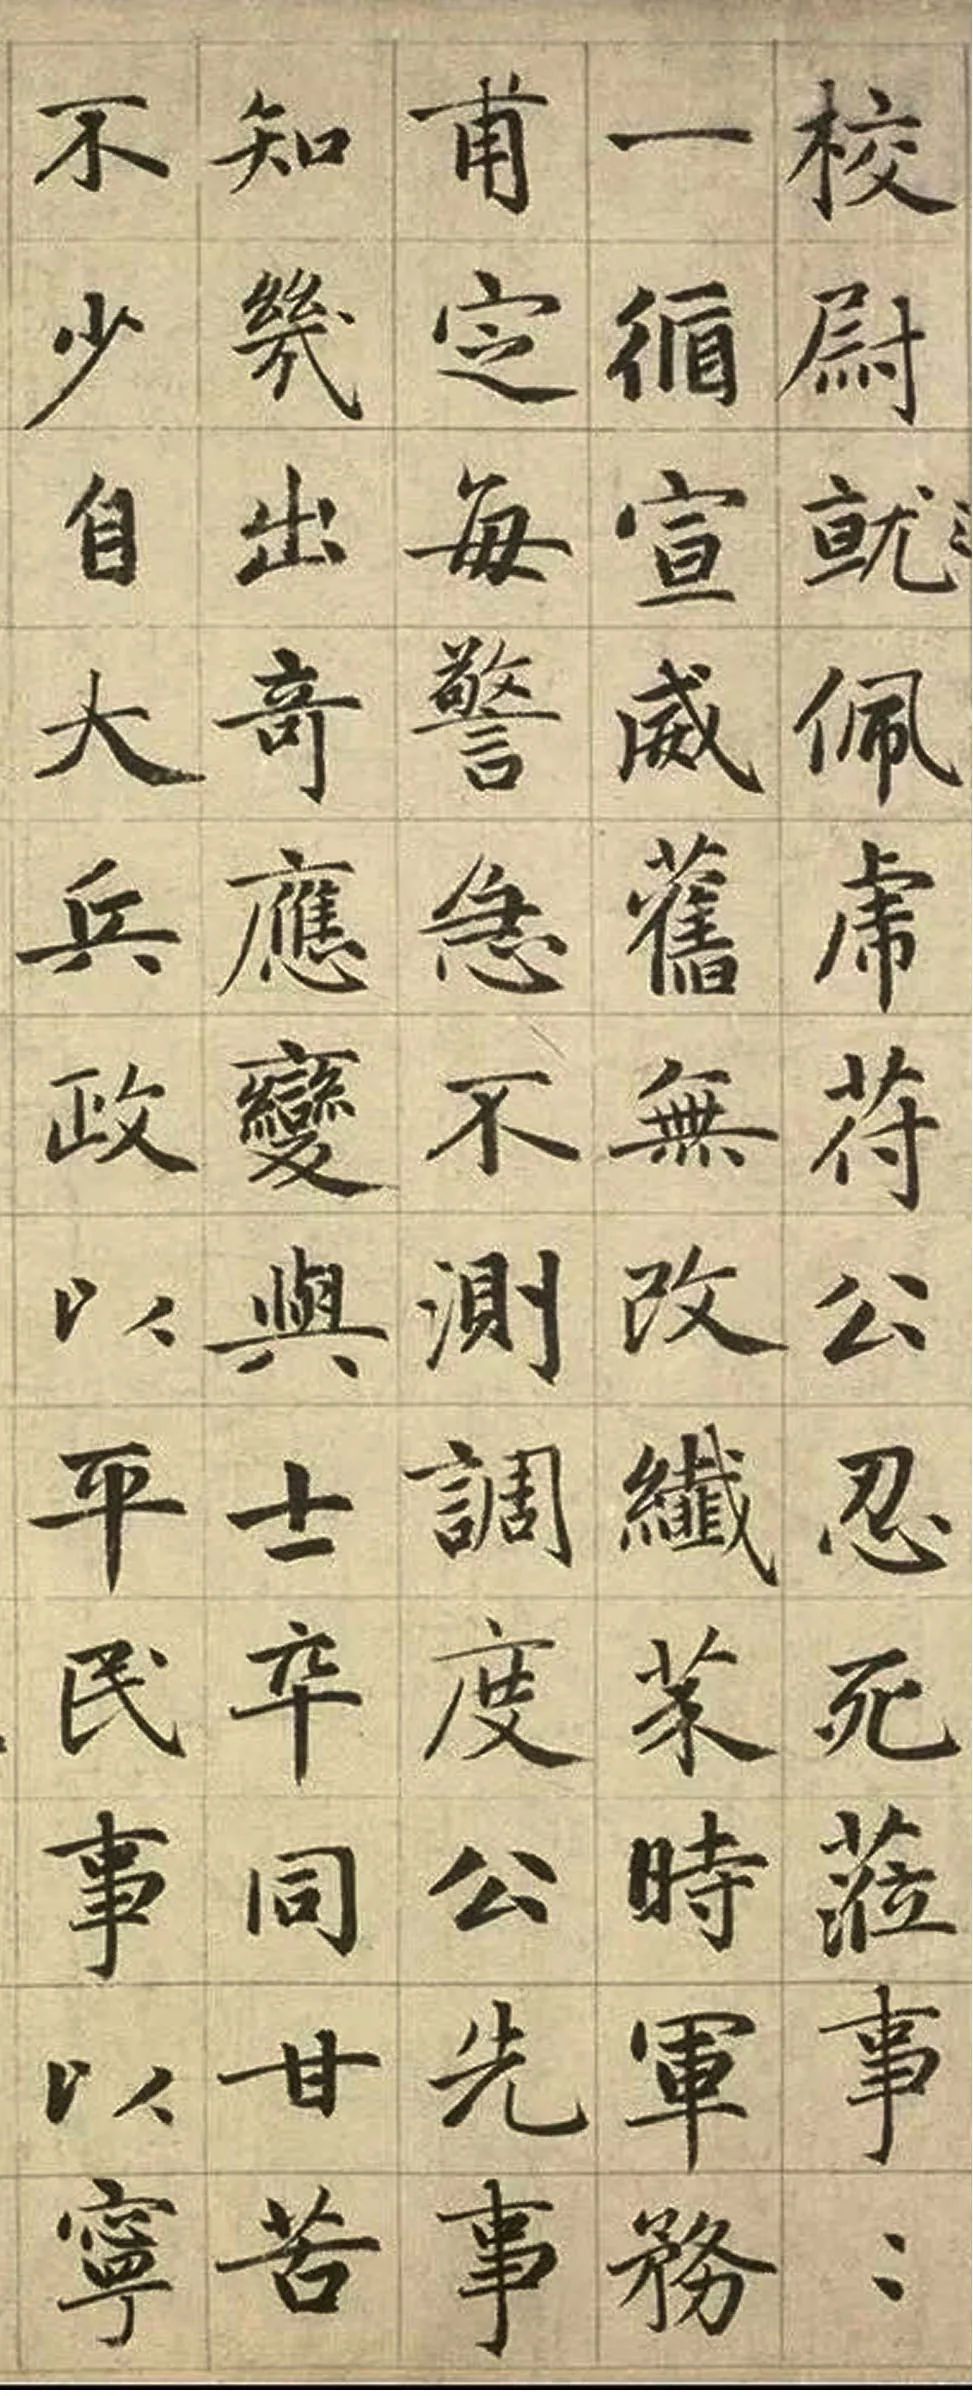 校尉就佩虎符公忍死蒞事〻
一循宣威舊無改纖菜時軍務
甫定每警急不測調度公先事
知幾出奇應變與士卒同甘苦
不少自大兵政以平民事以寧